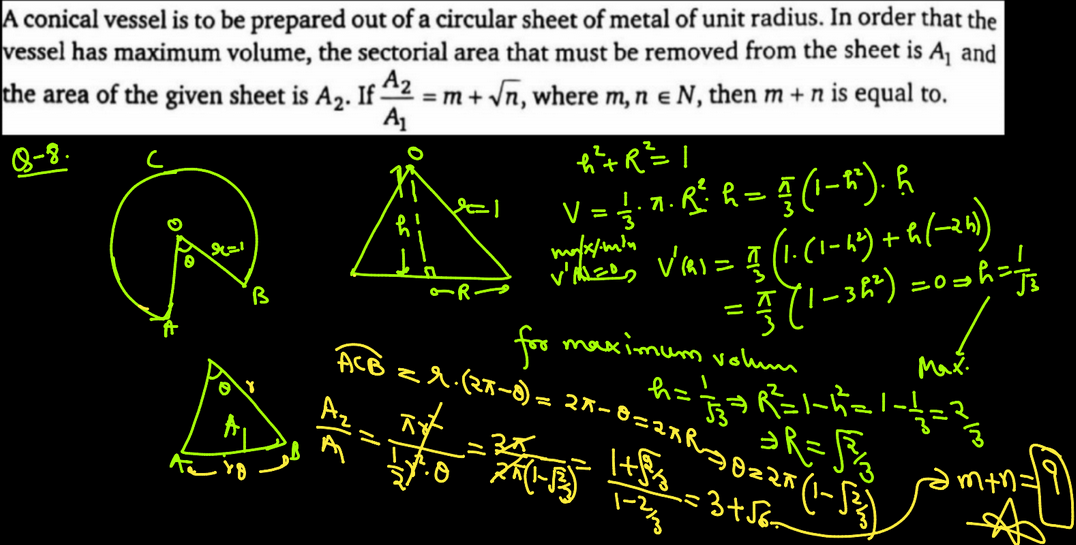 A conical vessel is to be prepared out of a circular sheet of metal of unit radius. In order that the
vessel has maximum volume, the sectorial area that must be removed from the sheet is A₁ and
the area of the given sheet is A₂. If A₂/A₁ = m + √n, where m, n ∈ N, then m + n is equal to.
Q-8.
C
O
θ
r=1
A
B
O
h
r=1
R
h²+R²=1
V = 1/3·π·R²·h = π/3(1-h²)·h
max/min
V'(h)=0
V'(h) = π/3(1·(1-h²)+h(-2h))
= π/3(1-3h²) = 0 ⇒ h = 1/√3
Max.
for maximum volum
h = 1/√3 ⇒ R² = 1-h² = 1-1/3 = 2/3
⇒ R = √2/3
θ
r
A₁
A
rθ
B
ACB = r·(2π-θ) = 2π-θ = 2πR → θ = 2π(1-√2/3)
A₂/A₁ = πr²/(1/2 r²·θ) = 2π/(2π(1-√2/3)) = (1+√2/3)/(1-2/3) = 3+√6
⇒ m+n = 9